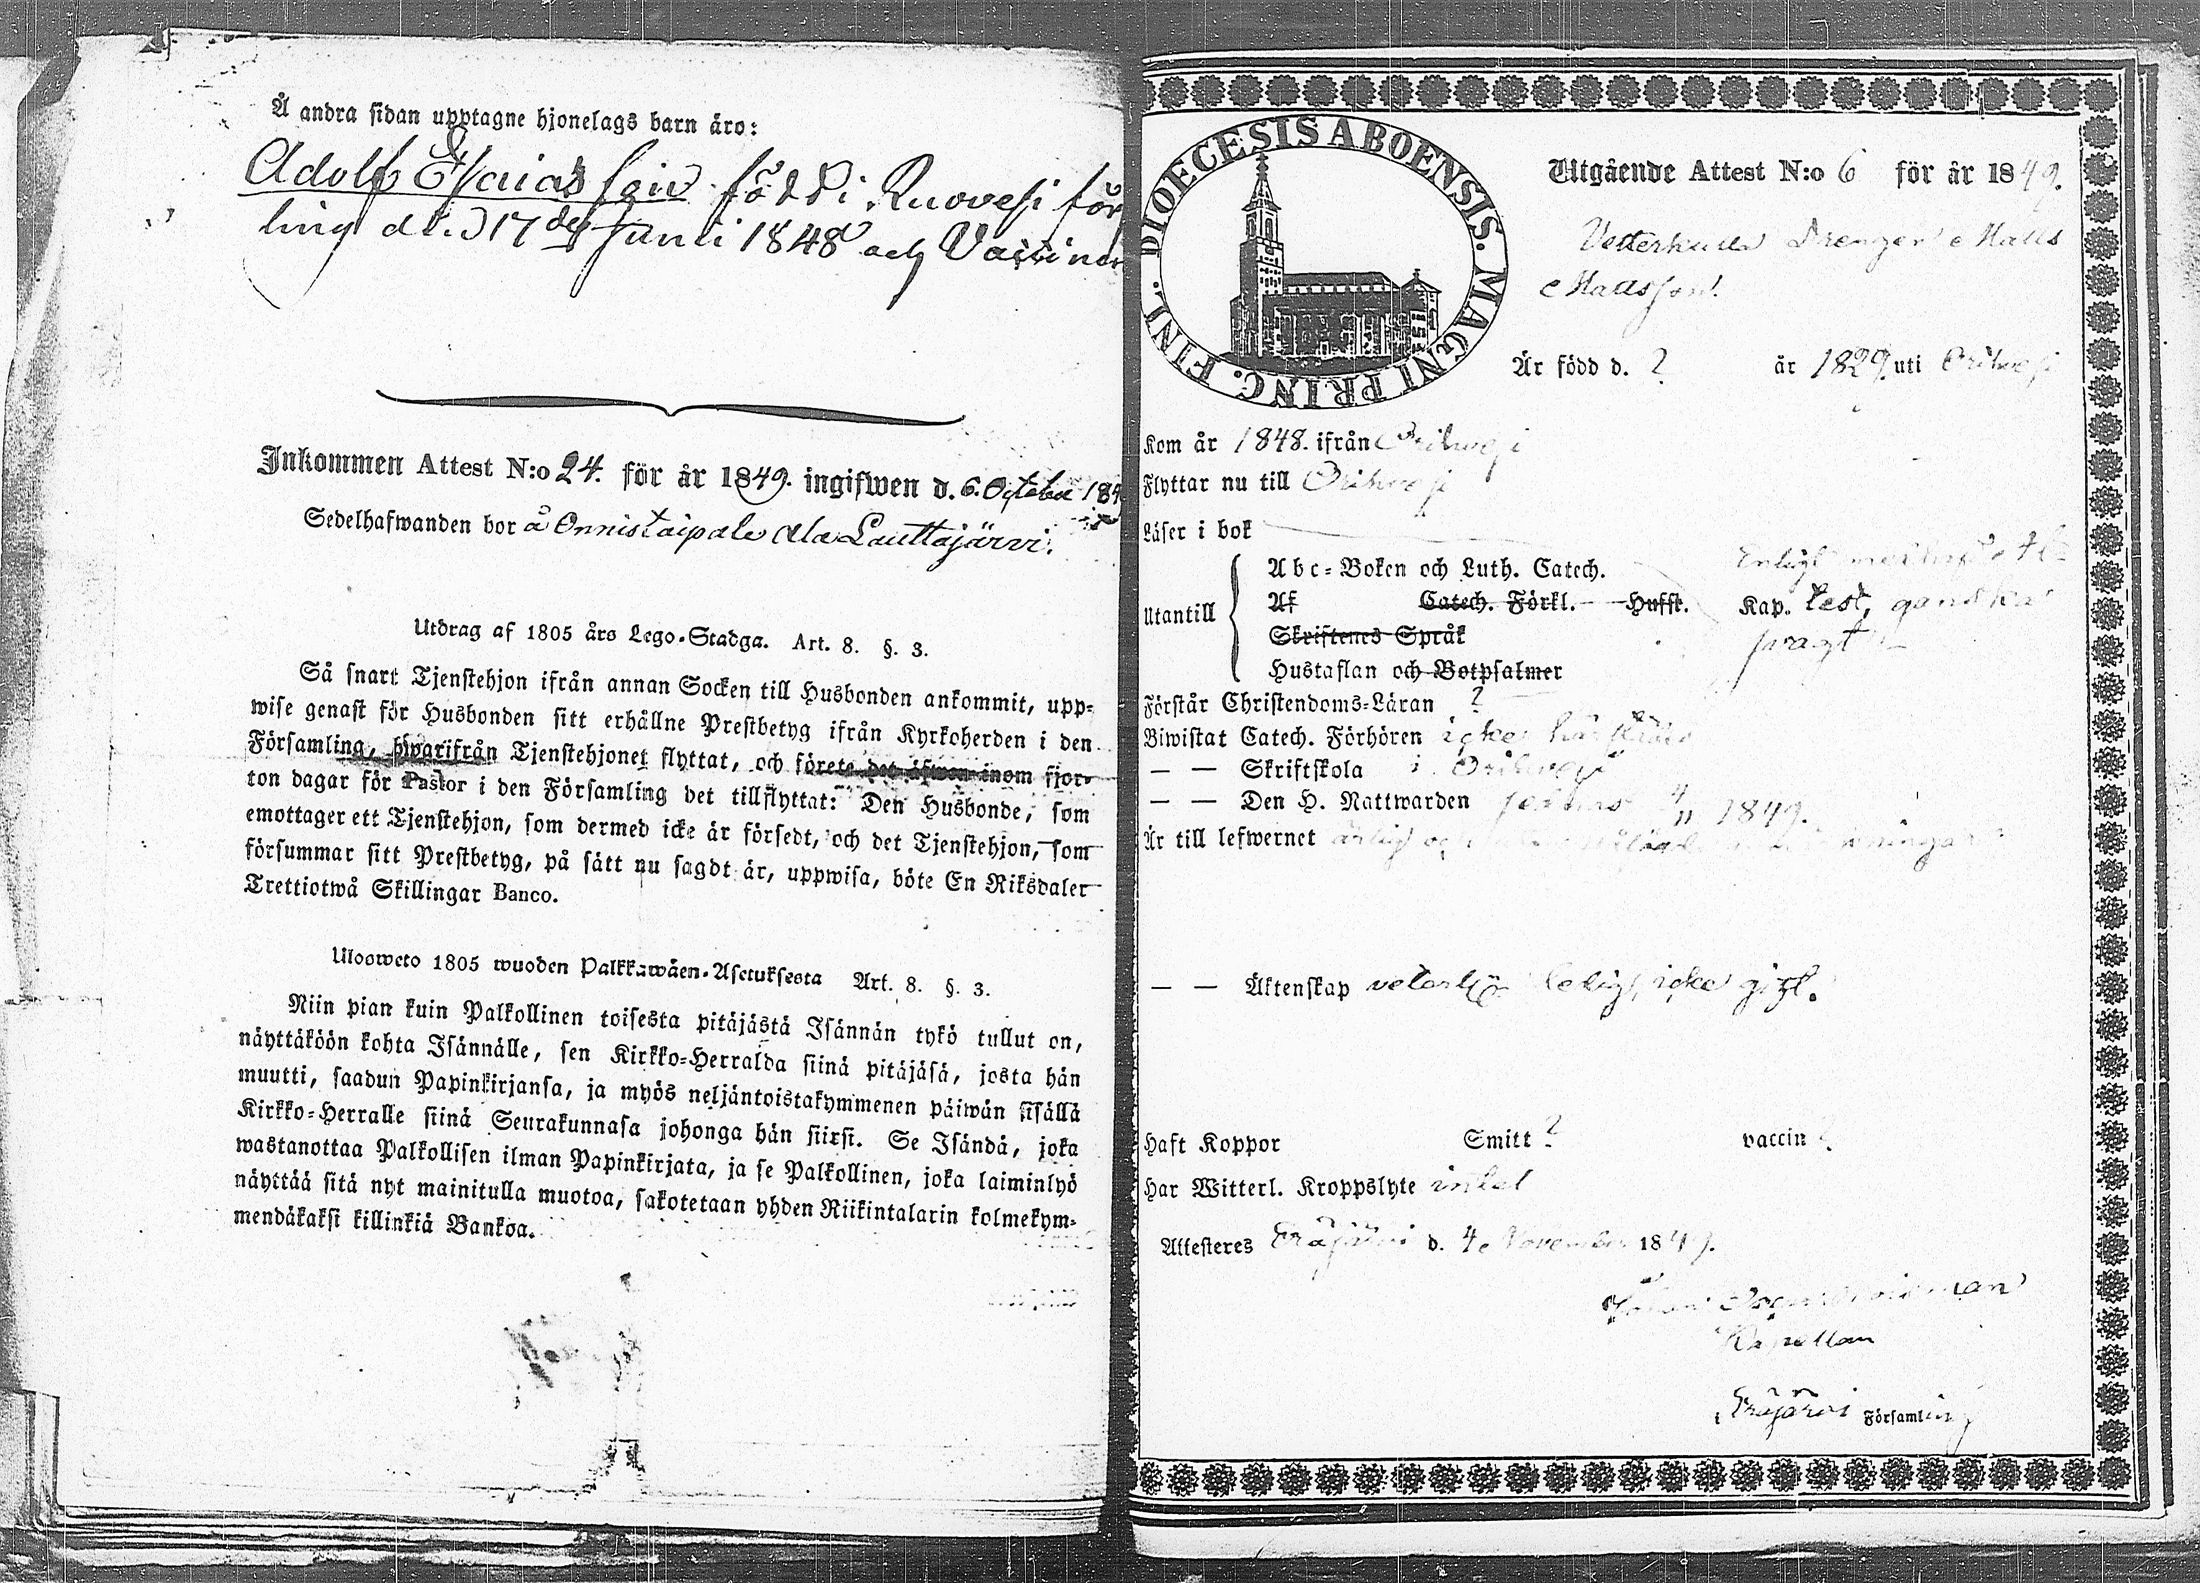 Å andra sidan upptagne hjonelags barn äro:
Adolf Esaias född i Ruovesi för
ling d. 17de Junii 1848 och
Inkommen Attest N:o 24. för år 1849. ingifwen d. 6. October 184
Sedelhafwanden bor å Onnistaipale Lauttajärvi.
Utdrag af 1805 års Lego-Stadga. Art. 8. §. 3.
Så snart Tjenstehjon ifrån annan Socken till Husbonden ankommit, upp-
wise genast för Husbonden sitt erhållne Prestbetyg ifrån Kyrkoherden i den
Församling, hwarifrån Tjenstehjonet flyttat, och förete det äfwen inom fjor-
ton dagar för Pastor i den Församling det tillflyttat: Den Husbonde, som
emottager ett Tjenstehjon, som dermed icke är försedt, och det Tjenstehjon, som
försummar sitt Prestbetyg, på sätt nu sagdt är, uppwisa, böte En Riksdaler
Trettiotwå Skillingar Banco.
Ulosweto 1805 wuoden Palkkawäen-Asetuksesta Art. 8. §. 3.
Niin pian kuin Palkollinen toisesta pitäjästä Isännän tykö tullut on,
näyttäköön kohta Isännälle, sen Kirkko-Herralda siinä pitäjäsä, josta hän
muutti, saadun Papinkirjansa, ja myös neljäntoistakymmenen päiwän sisällä
Kirkko-Herralle siinä Seurakunnasa johonga hän siirsi. Se Isändä, joka
wastanottaa Palkollisen ilman Papinkirjata, ja se Palkollinen, joka laiminlyö
näyttää sitä nyt mainitulla muotoa, sakotetaan yhden Riikintalarin kolmekym-
mendäkaksi killinkiä Bankoa.
DIOECESIS ABOENSIS. MAGNI PRINC. FINL.
Utgående Attest N:o 6 för år 1849.
Drengen Matts
Mattsson.
Är född d. ? år 1829 uti Orihvesi
Kom år 1848. ifrån Orihvesi
Flyttar nu till Orihvesi
Läser i bok
Enligt
Abc-Boken och Luth. Catech.
Utantill Af Catech. Förkl. Hussk. Kap. test, ganska
Skriftenes Språk
Hustaflan och Botpsalmer
Förstår Christendoms-Läran ?
Biwistat Catech. Förhören icke
— — Skriftskola i Orihvesi
— — Den H. Nattwarden 4/11 1849.
Är till lefwernet ärlig
— — Äktenskap ledig, icke gift.
Haft Koppor Smitt ? vaccin ?
Har Witterl. Kroppslyte intet
Attesteres Eräjärvi d. 4 November 1849.
Kapellan
Eräjärvi Församling